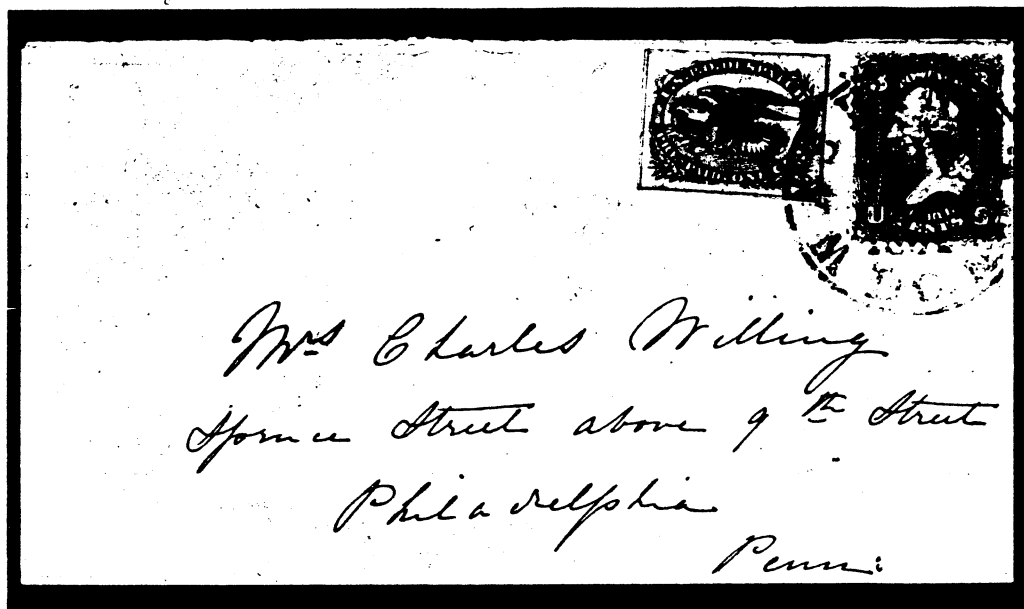 U S
CENTS
Mrs Charles Willing
Spruce Street above 9th Street
Philadelphia
Penn: